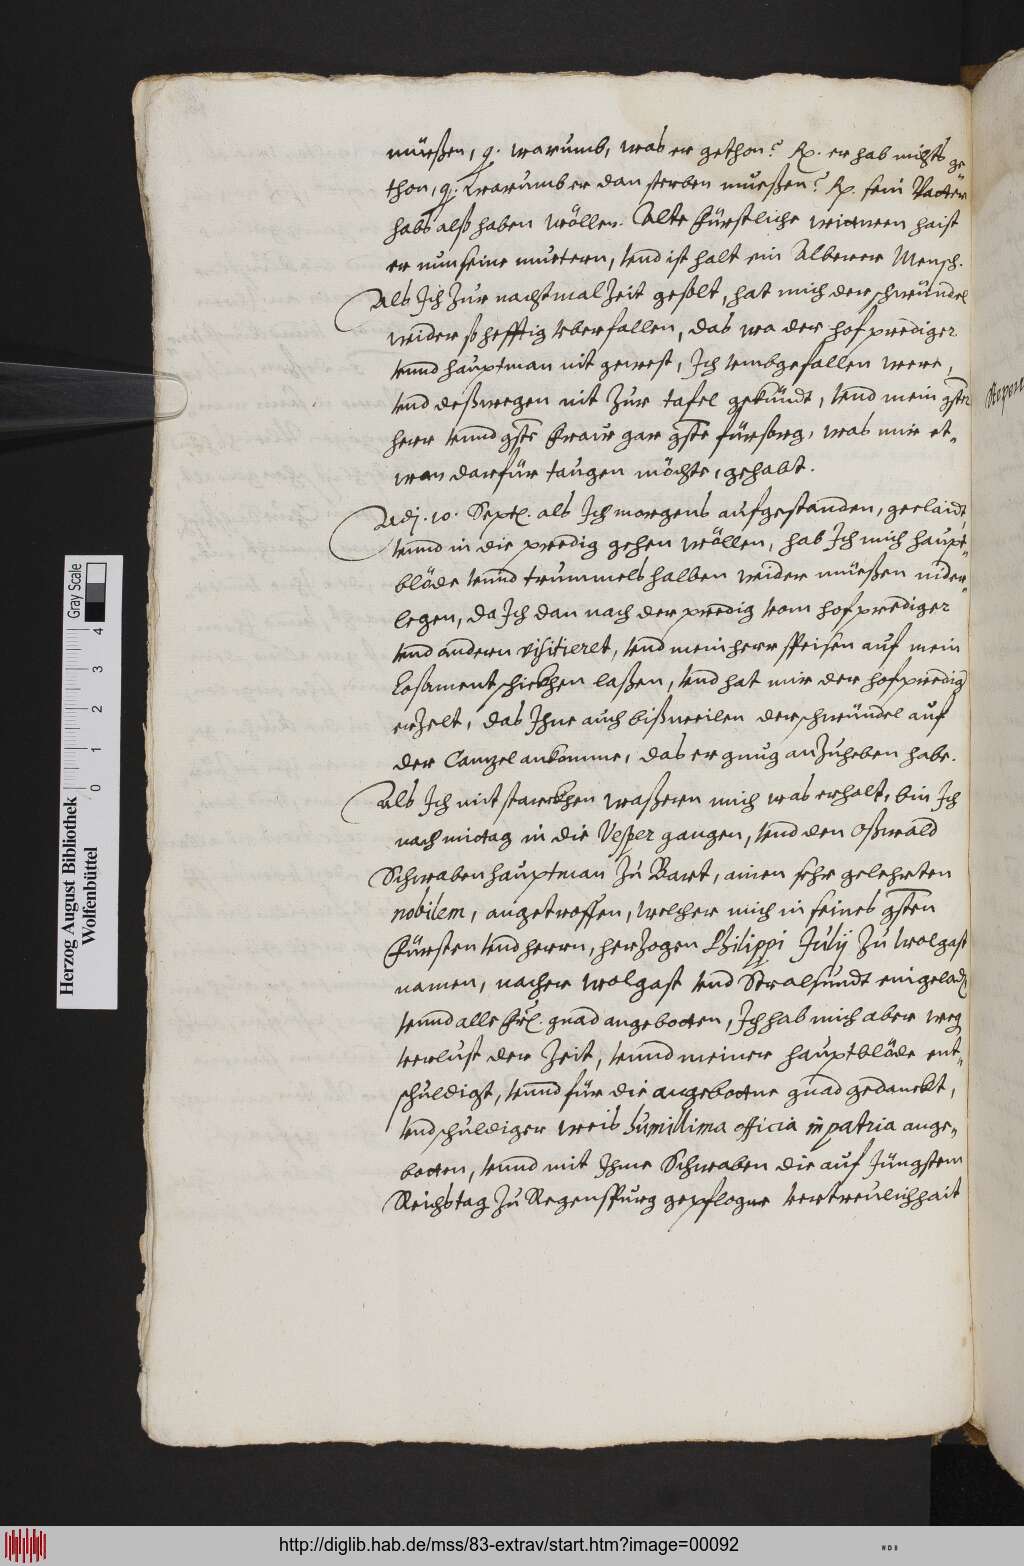 müeßen, q. warumb, was er gethon? Rx. er hab nichts ge
thon, q. warumb er dan sterben mueßen? Rx. sein Vatter
habs alß haben wöllen. Alte Fürstliche wittween haist
er nun seine muettern, vnd ist halt ein Alberer Mensch.
Als Ich zur nachtmal Zeit gesolt, hat mich der schwündel
wider so hefftig vberfallen, das wa der hofprediger
vnnd hauptman nit gewest, Ich vmbgefallen were,
vnd deßwegen nit zur tafel gekündt, vnd mein gster
herr vnnd gste Fraw gar gste fürsorg, was mir et„
wan darfür taugen möchte, gehabt.
Adj. 10. Septl. als Ich morgens aufgestanden, geclaidt
vnnd in die predig gehen wöllen, hab Ich mich haupt„
blöde vnnd trummels halben wider müeßen nider„
legen, da Ich dan nach der predig vom hofprediger
vnd andern visitieret, vnd mein herr speisen auf mein
Losament schickhen laßen, vnd hat mir der hofpredig
erzelt, das Ihne auch bißweilen der schwündel auf
der Canzel ankomme, das er gnug anzuheben habe.
Als Ich mit starckhen waßern mich was erholt, bin Ich
nachmictag in die Vesper gangen, vnd den Oßwald
Schwaben hauptman zu Bart, ainen sehr gelehrten
nobilem, angetroffen, welcher mich in seines gsten
Fürsten vnd herrn, herzogen Philippi Julij zu Wolgast
namen, nacher Wolgast vnd Stralsundt eingelad
vnnd alle Frl. gnad angebotten, Ich hab mich aber weg
verlust der Zeit, vnnd meiner hauptblöde ent„
schuldigt, vnnd für die angebottne gnad gedanckt,
vnd schuldiger weis humillima officia in patria ange„
botten, vnnd mit Ihme Schwaben die auf Jüngstem
Reichstag zu Regenspurg gepflogne vertreulichhait
Herzog August Bibliothek
Wolfenbüttel
Gray Scale
0 1 2 3 4
http://diglib.hab.de/mss/83-extrav/start.htm?image=00092